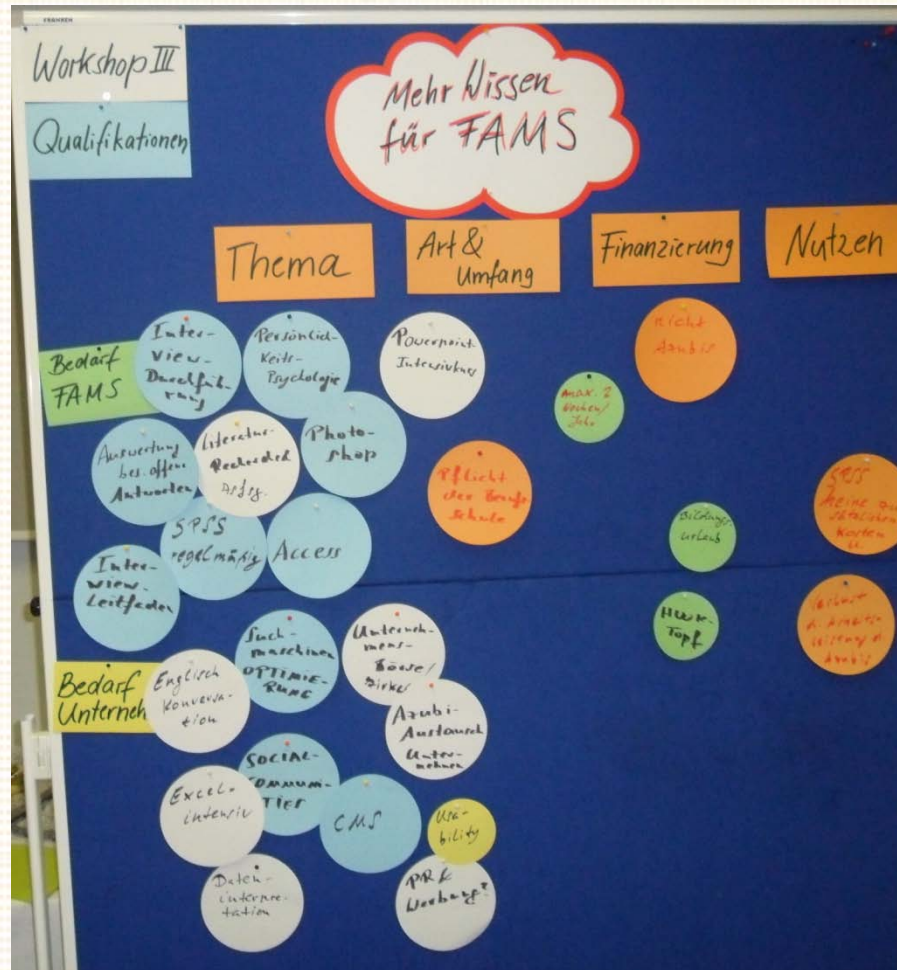 FRANKEN
Workshop III
Qualifikationen
Mehr Wissen
für FAMS
Thema
Art &
Umfang
Finanzierung
Nutzen
Bedarf
FAMS
Inter-
view-
Durchfüh-
rung
Persönlich-
keits-
Psychologie
Powerpoint-
Intensivkurs
nicht
Azubis
max. 2
Wochen/
Jahr
Auswertung
bes. offene
Antworten
Literatur-
Recherchen
Photo-
shop
Pflicht
der Berufs
schule
SPSS
keine zu
sätzlichen
Kosten
SPSS
regelmäßig
Access
Bildungs-
urlaub
Inter-
view-
Leitfaden
HWK-
Topf
Verlust
d. Arbeits-
d.
Azubis
Bedarf
Unterneh
Englisch
Konversa-
tion
Such-
maschinen
OPTIMIE-
RUNG
Unterneh-
mens-
Börse/
Zirkel
Azubi-
Austausch
Unter-
nehmen
SOCIAL-
COMMUNI-
TIES
Excel-
intensiv
CMS
Usa-
bility
Daten-
interpre-
tation
PR &
Werbung?